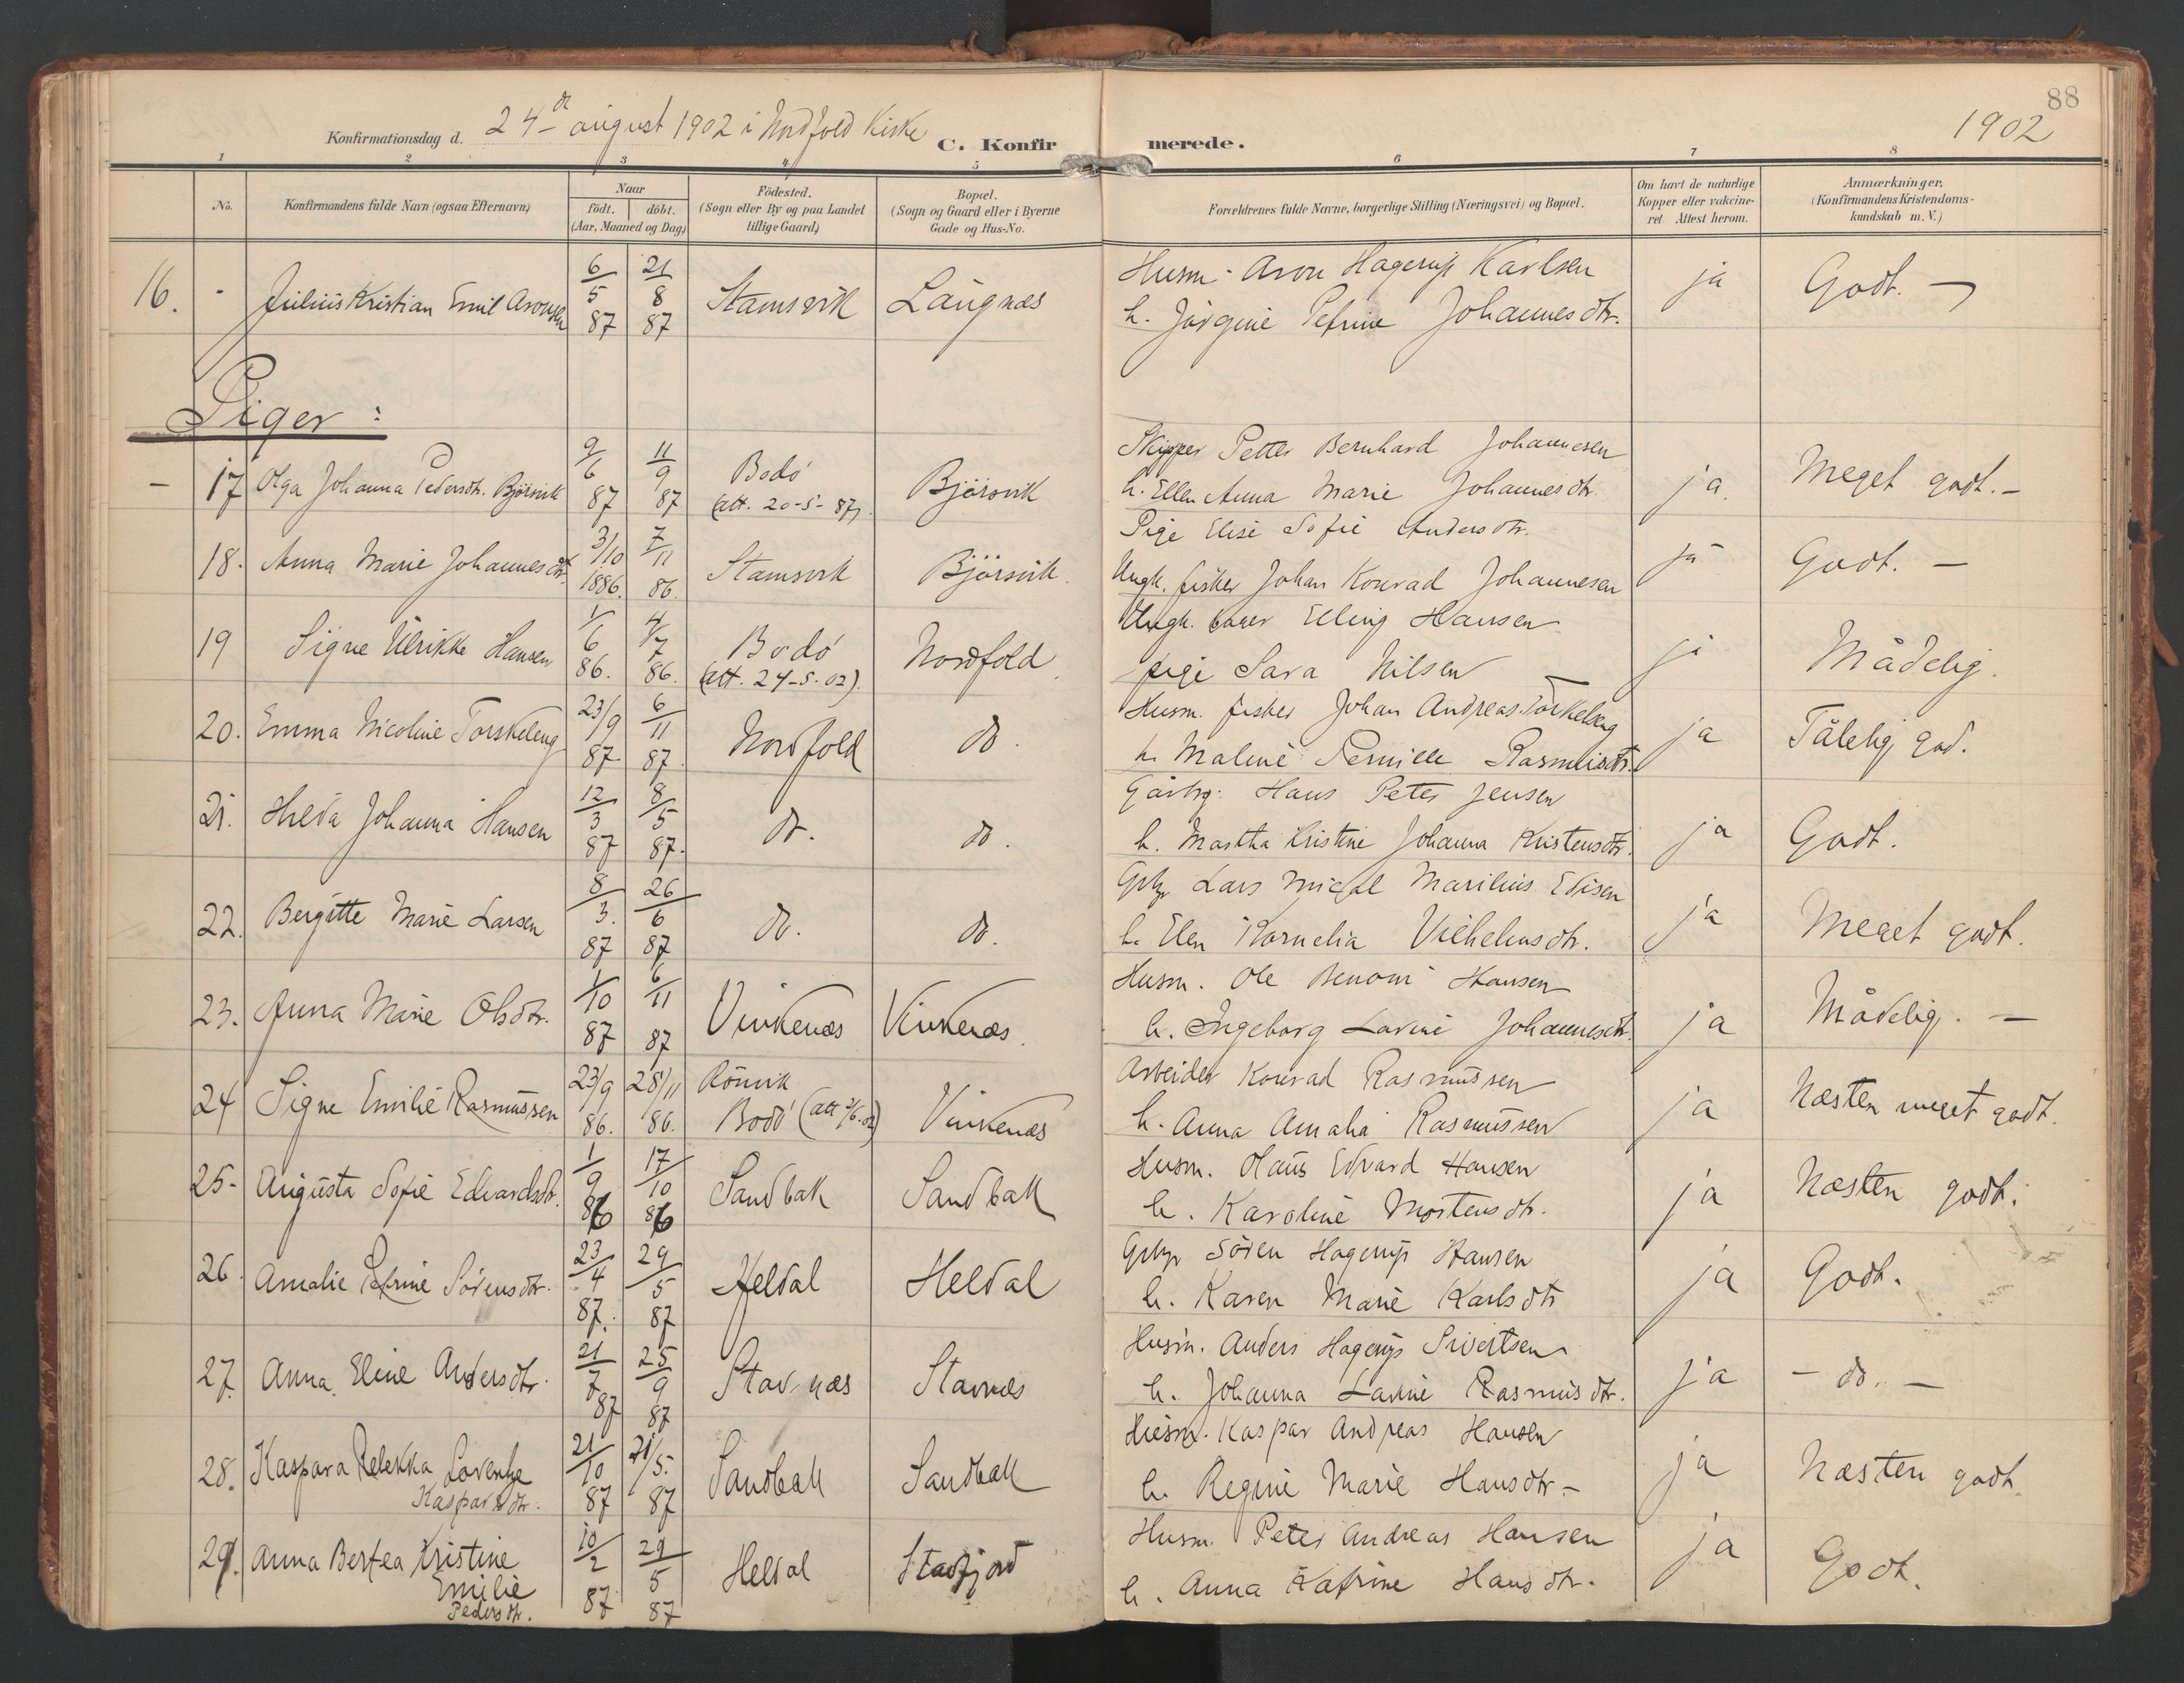 88
1902
Konfirmationsdag d. 24de august 1902 i Nordfold Kirke
C. Konfirmerede.
1 2 3 4 5 6 7 8
No.
Konfirmandens fulde Navn (ogsaa Efternavn)
Naar
födt. döbt.
(Aar, Maaned og Dag)
Födested.
(Sogn eller By og paa Landet
tillige Gaard)
Bopæl.
(Sogn og Gaard eller i Byerne
Gade og Hus-No.
Forældrenes fulde Navne, borgerlige Stilling (Næringsvei) og Bopæl.
Om havt de naturlige
Kopper eller vakcine-
ret Attest herom.
Anmærkninger.
(Konfirmandens Kristendoms-
kundskab m. V.)
16. Julius Kristian Emil Aronsen 6/5 87 21/8 87 Stamsvik Langnæs
Husm. Aron Hagerup Karlsen
h. Jörgine Petrine Johannesdtr. ja Godt. -
Piger:
- 17 Olga Johanna Pedersdtr. Björsvik 9/6 87 11/9 87 Bodö (att. 20-5-87) Björsvik
Skipper Petter Bernhard Johannesen
h. Ellen Anna Marie Johannesdtr. ja. Meget godt. -
18. Anna Marie Johannesdtr. 3/10 1886. 7/11 86. Stamsvik Björsvik.
Pige Elise Sofie Andersdtr.
Ungk. fisker Johan Konrad Johannesen ja Godt. -
19 Signe Ulrikke Hansen 1/6 86. 4/7 86. Bodö (att. 24-5-02). Nordfold
Ungk. bager Elling Hansen
pige Sara Nilsen ja Mådelig.
20. Emma Nicoline Torskeleng 23/9 87 6/11 87 Nordfold do.
Husm. fisker Johan Andreas
h. Maline Pernille Rasmusdtr. ja Tålelig god.
21. Hilda Johanna Hansen 12/3 87 8/5 87. do. do.
Gårbr. Hans Peter Jensen
h. Martha Kristine Johanna Kristensdtr. ja Godt.
22. Bergitte Marie Larsen 8/3. 87 26/6 87 do. do.
Lars Marilius
h. Elen Kornelia Vilhelmsdtr. ja Meget godt.
23. Anna Marie Olsdtr. 1/10 87 6/11 87 Vinkenæs Vinkenæs.
Husm. Ole Benoni Hansen
h. Ingeborg Lavine Johannesdtr. ja Mådelig. -
24 Signe Emilie Rasmussen 23/9 86. 28/11 86. Rönvik Bodö (att 2/6.02) Vinkenæs
Arbeider Konrad Rasmussen
h. Anna Amalia Rasmussen ja Næsten meget godt.
25. Augusta Sofie Edvardsdtr. 1/9 86 17/10 86 Sandbak Sandbak
Husm. Edvard Hansen
h. Karoline Mortensdtr. ja Næsten godt.
26. Amalie Petrine Sörensdtr. 23/4 87. 29/5 87 Heldal Heldal
Sören Hagerup Hansen
h. Karen Marie Karlsdtr ja Godt.
27. Anna Eline Andersdtr. 21/7 87 25/9 87 Stavnæs Stavnæs
Husm. Anders Hagerup Sivertsen
h. Johanna Lavine Rasmusdtr. ja - do. -
28. Kaspara Rebekka Lorentze Kasparsdtr. 21/10 87 21/5. 87 Sandbak Sandbak
Husm. Kaspar Andreas Hansen
h. Regine Marie Hansdtr. - ja Næsten godt.
29. Anna Bertea Kristine Emilie Pedersdtr. 10/2 87 29/5 87 Heldal
Husm. Peter Andreas Hansen
h. Anna Katrine Hansdtr. ja Godt.